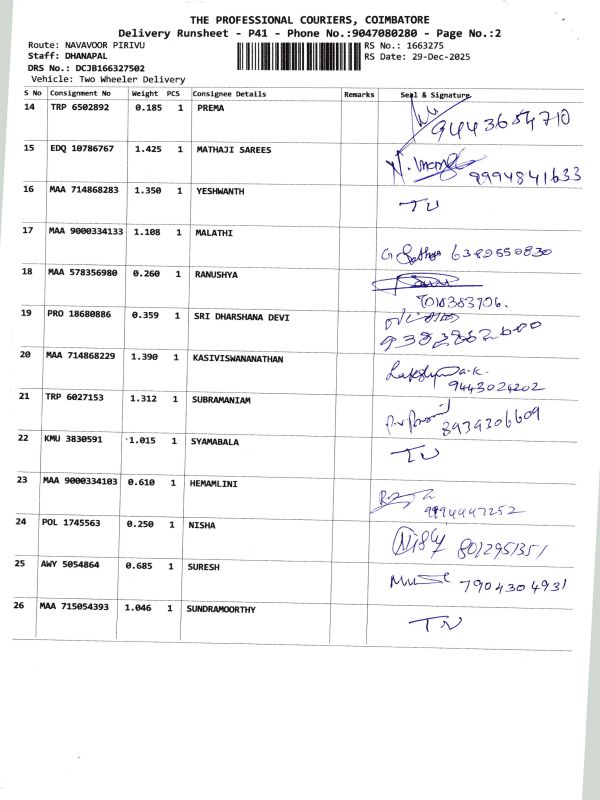 THE PROFESSIONAL COURIERS, COIMBATORE
Delivery Runsheet - P41 - Phone No.:9047080280 - Page No.:2
Route: NAVAVOOR PIRIVU
RS No.: 1663275
Staff: DHANAPAL
RS Date: 29-Dec-2025
DRS No.: DCJB166327502
Vehicle: Two Wheeler Delivery
S No Consignment No Weight PCS Consignee Details Remarks Seal & Signature
14 TRP 6502892 0.185 1 PREMA
15 EDQ 10786767 1.425 1 MATHAJI SAREES
9994841633
16 MAA 714868283 1.350 1 YESHWANTH
17 MAA 9000334133 1.108 1 MALATHI
6389550830
18 MAA 578356980 0.260 1 RANUSHYA
19 PRO 18680886 0.359 1 SRI DHARSHANA DEVI
20 MAA 714868229 1.390 1 KASIVISWANANATHAN
9443024202
21 TRP 6027153 1.312 1 SUBRAMANIAM
8939306609
22 KMU 3830591 1.015 1 SYAMABALA
23 MAA 9000334103 0.610 1 HEMAMLINI
9994447252
24 POL 1745563 0.250 1 NISHA
8012951351
25 AWY 5054864 0.685 1 SURESH
7904304931
26 MAA 715054393 1.046 1 SUNDRAMOORTHY